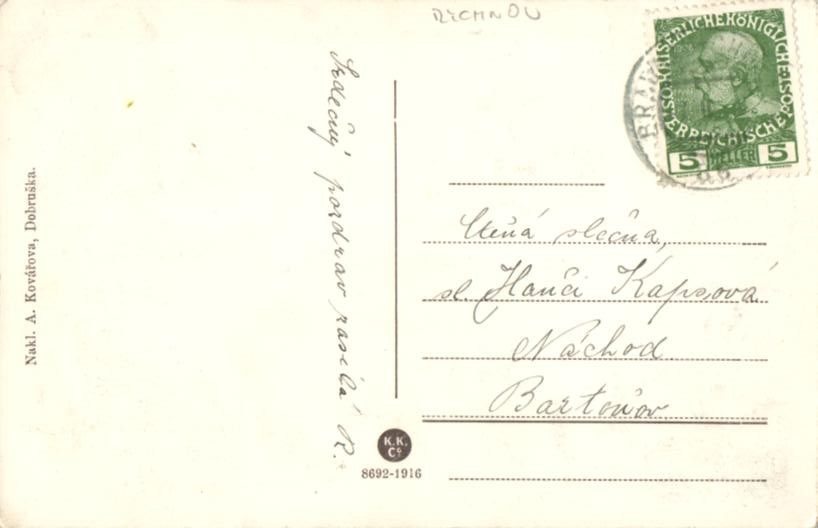 RYCHNOV
KAISERLICHE KÖNIGLICHE ÖSTERREICHISCHE POST
5 HELLER 5
Srdečný pozdrav zasílá R.
Ctěná slečna,
sl. Hanči Kapsová
Náchod
Bartoňov
Nakl. A. Kovářova, Dobruška.
K.K.
Co
8692-1916